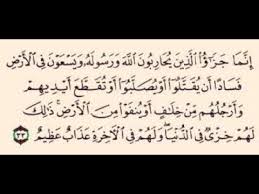 إِنَّمَا جَزَٰٓؤُا۟ ٱلَّذِينَ يُحَارِبُونَ ٱللَّهَ وَرَسُولَهُۥ وَيَسْعَوْنَ فِى ٱلْأَرْضِ
فَسَادًا أَن يُقَتَّلُوٓا۟ أَوْ يُصَلَّبُوٓا۟ أَوْ تُقَطَّعَ أَيْدِيهِمْ
وَأَرْجُلُهُم مِّنْ خِلَٰفٍ أَوْ يُنفَوْا۟ مِنَ ٱلْأَرْضِ ۚ ذَٰلِكَ
لَهُمْ خِزْىٌ فِى ٱلدُّنْيَا ۖ وَلَهُمْ فِى ٱلْءَاخِرَةِ عَذَابٌ عَظِيمٌ ٣٣